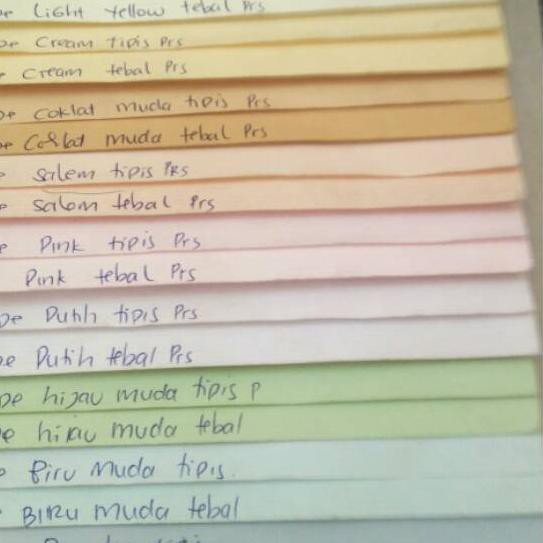 Light Yellow tebal Prs
Cream tipis Prs
Cream tebal Prs
Coklat muda tipis Prs
Coklat muda tebal Prs
Salem tipis PRS
Salem tebal Prs
Pink tipis Prs
Pink tebal Prs
Putih tipis Prs
Putih tebal Prs
hijau muda tipis P
hijau muda tebal
Biru Muda tipis.
BIRU muda tebal